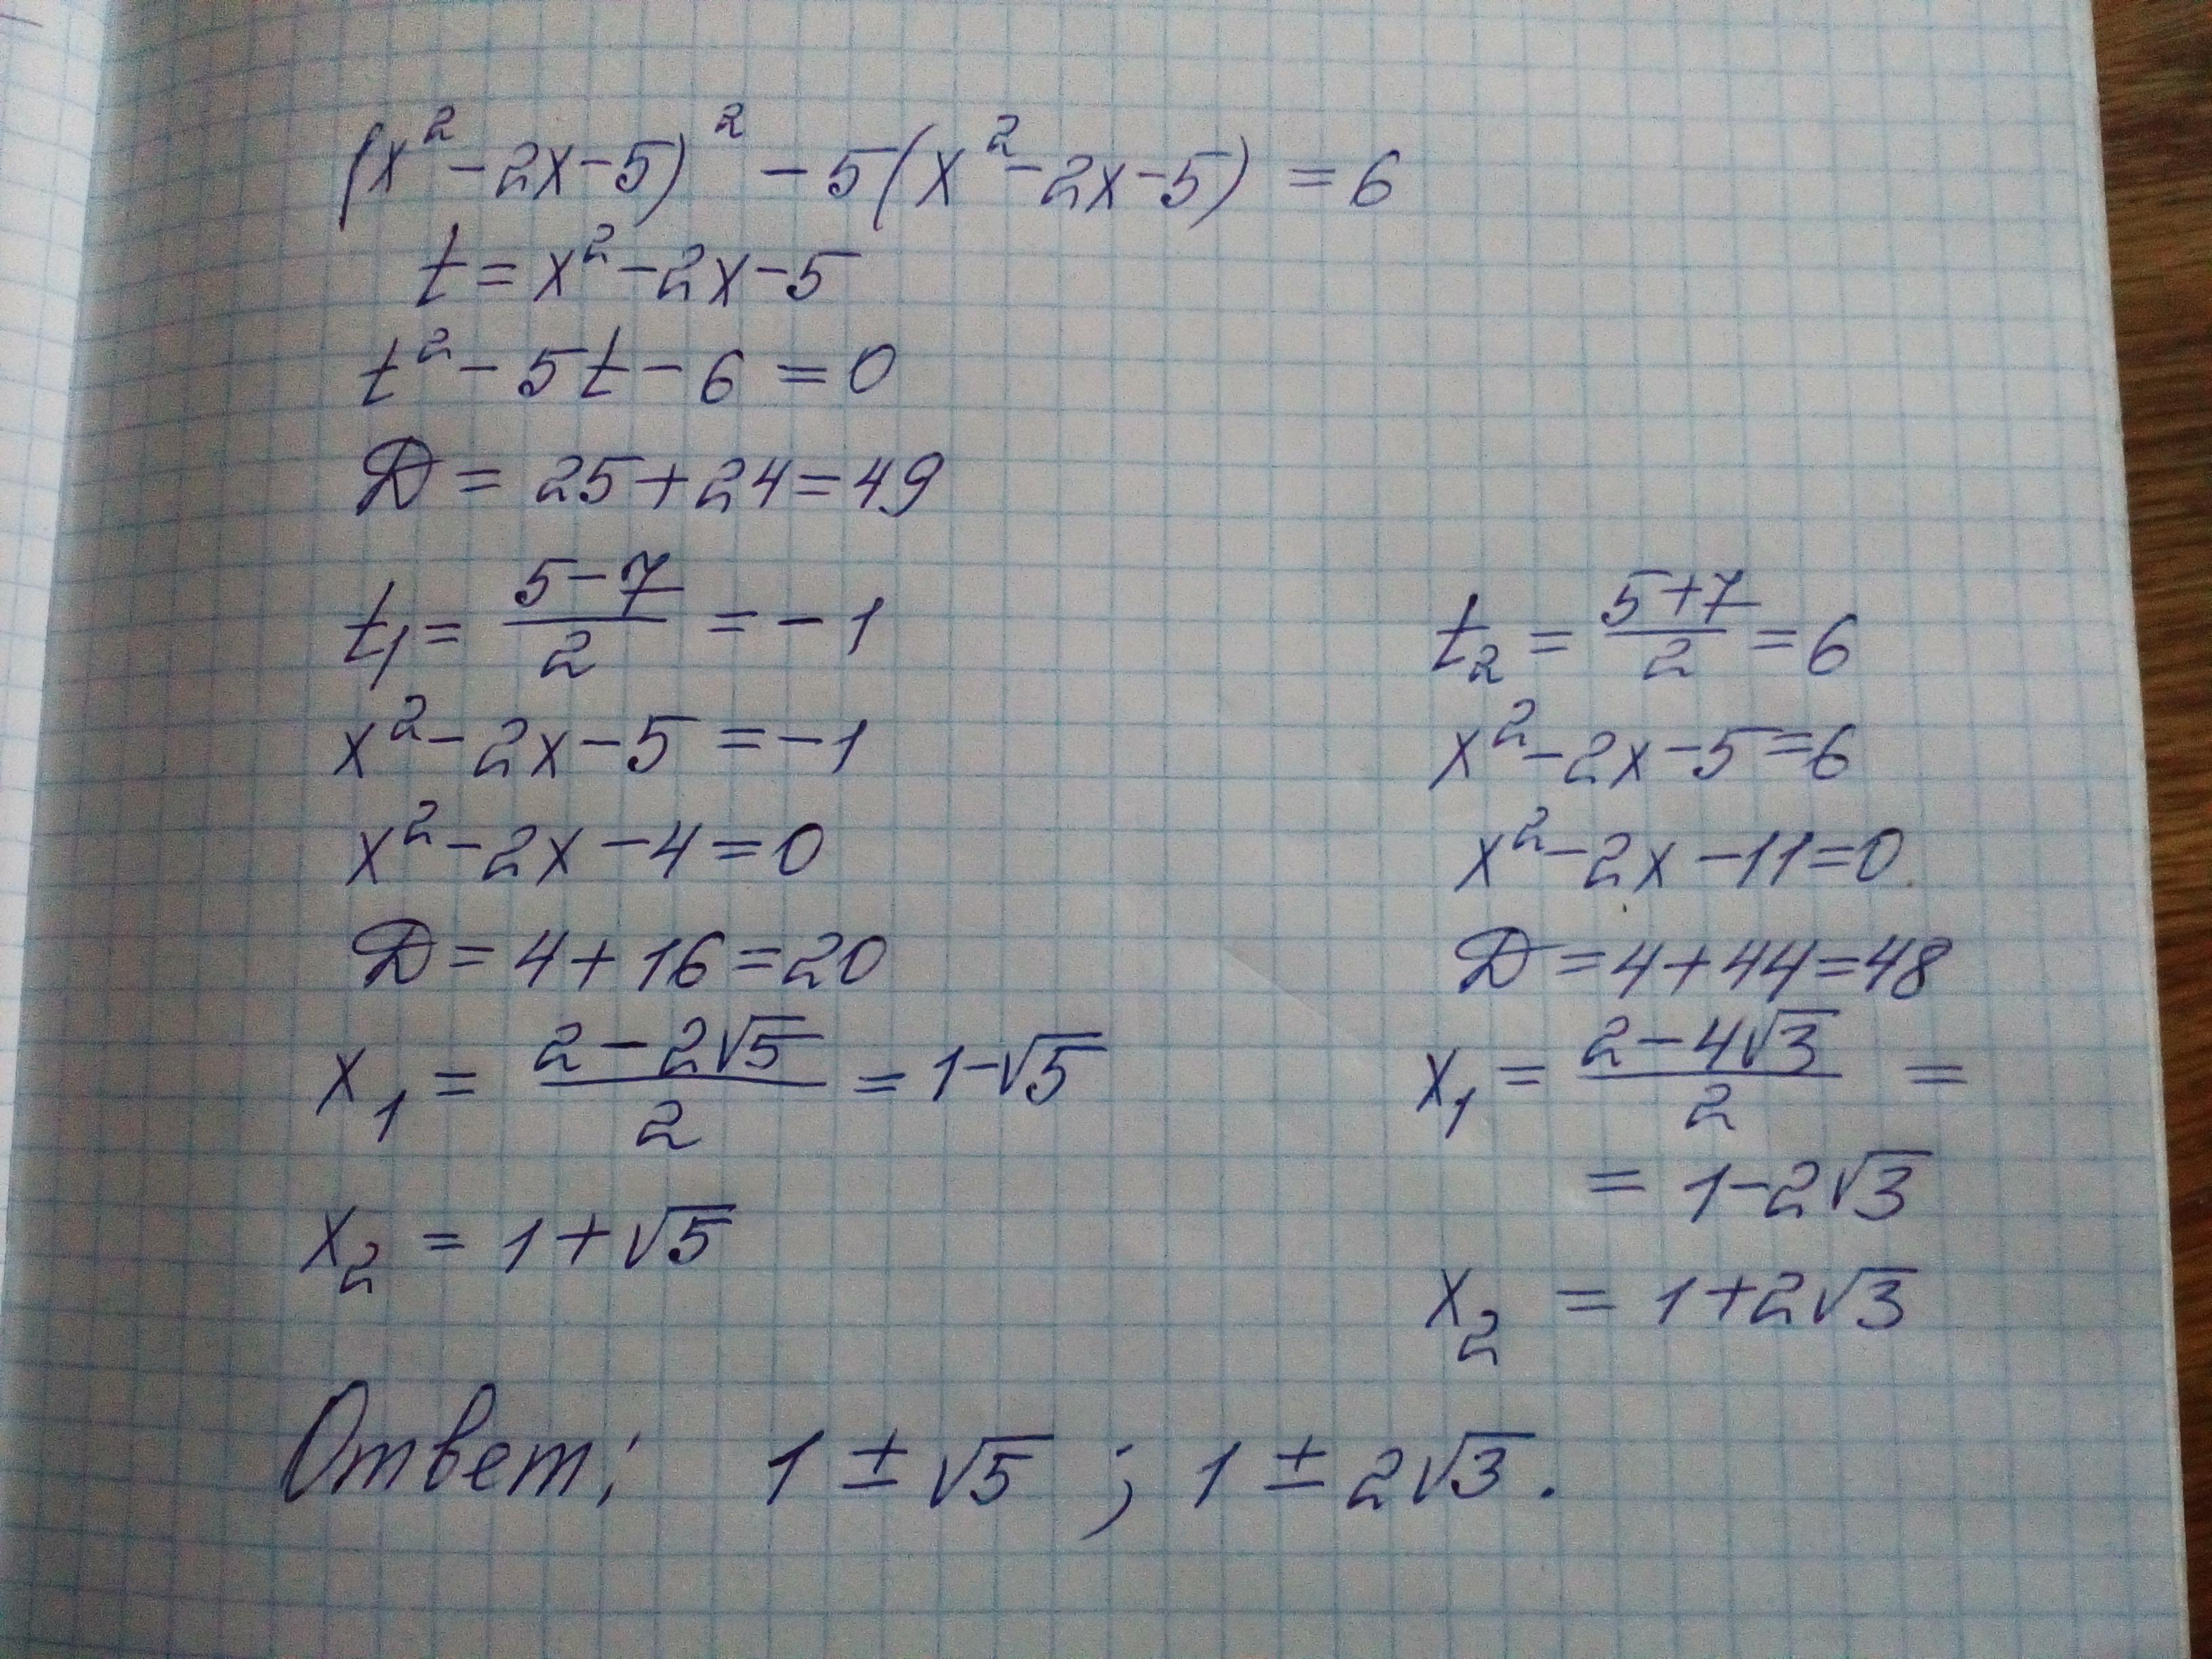 (x² - 2x - 5)² - 5(x² - 2x - 5) = 6
t = x² - 2x - 5
t² - 5t - 6 = 0
D = 25 + 24 = 49
t₁ = (5 - 7)/2 = -1
x² - 2x - 5 = -1
x² - 2x - 4 = 0
D = 4 + 16 = 20
x₁ = (2 - 2√5)/2 = 1 - √5
x₂ = 1 + √5
t₂ = (5 + 7)/2 = 6
x² - 2x - 5 = 6
x² - 2x - 11 = 0
D = 4 + 44 = 48
x₁ = (2 - 4√3)/2 =
= 1 - 2√3
x₂ = 1 + 2√3
Ответ: 1 ± √5 ; 1 ± 2√3.